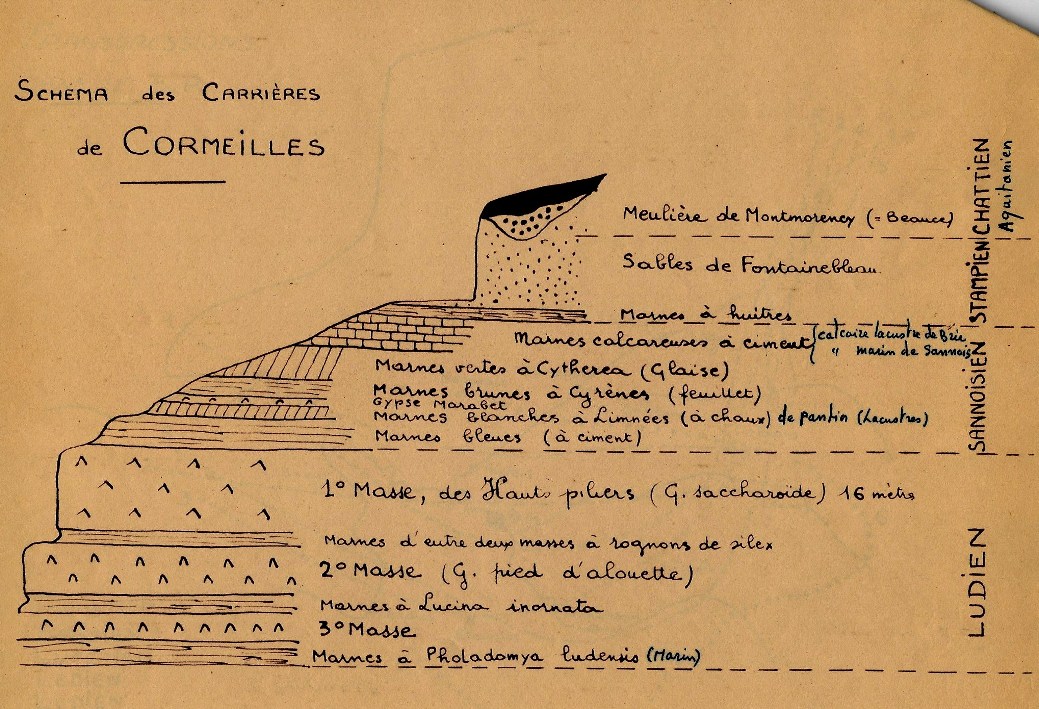 SCHÉMA des CARRIÈRES
de CORMEILLES
Meulière de Montmorency (= Beauce)
Sables de Fontainebleau.
Marnes à huîtres
Marnes calcareuses à ciment { calcaire lacustre de Brie
" marin de Sannois
Marnes vertes à Cytherea (Glaise)
Marnes brunes à Cyrènes (feuillet)
Gypse Marabet
Marnes blanches à Limnées (à chaux) de pantin (Lacustres)
Marnes bleues (à ciment)
1º Masse, des Hauts piliers (G. saccharoïde) 16 mètrs
Marnes d'entre deux masses à rognons de silex
2º Masse (G. pied d'alouette)
Marnes à Lucina inornata
3º Masse
Marnes à Pholadomya ludensis (Marin)
CHATTIEN
Aquitanien
STAMPIEN
SANNOISIEN
LUDIEN